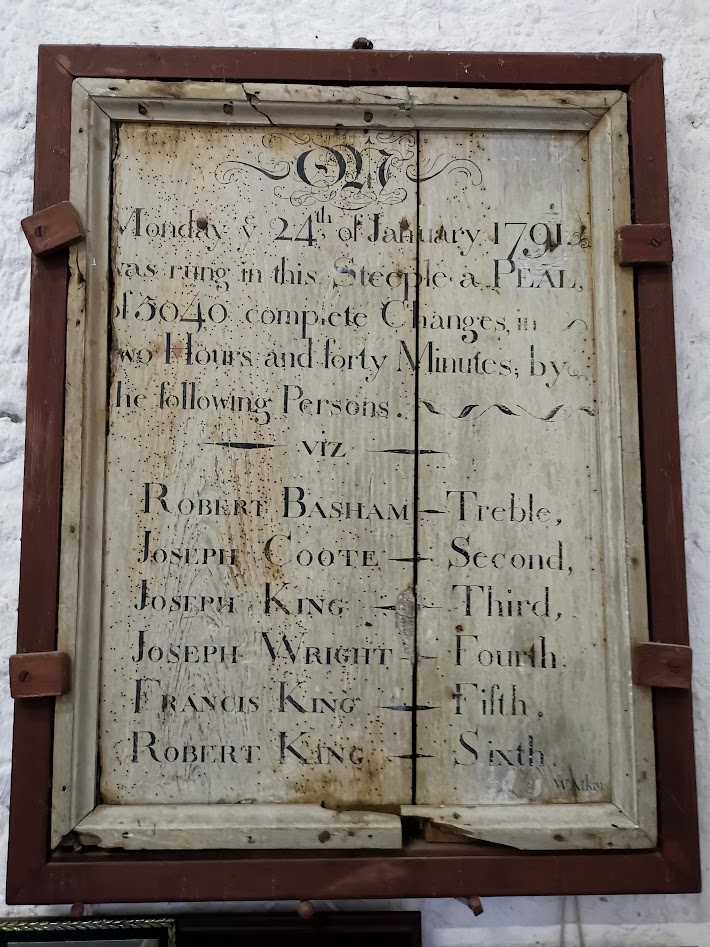 ON
Monday ẏ 24th of January 1791
was rung in this Steeple a PEAL,
of 5040 complete Changes, in
two Hours and forty Minutes, by
the following Persons.
VIZ
ROBERT BASHAM — Treble,
JOSEPH COOTE — Second,
JOSEPH KING — Third,
JOSEPH WRIGHT — Fourth
FRANCIS KING — Fifth,
ROBERT KING — Sixth.